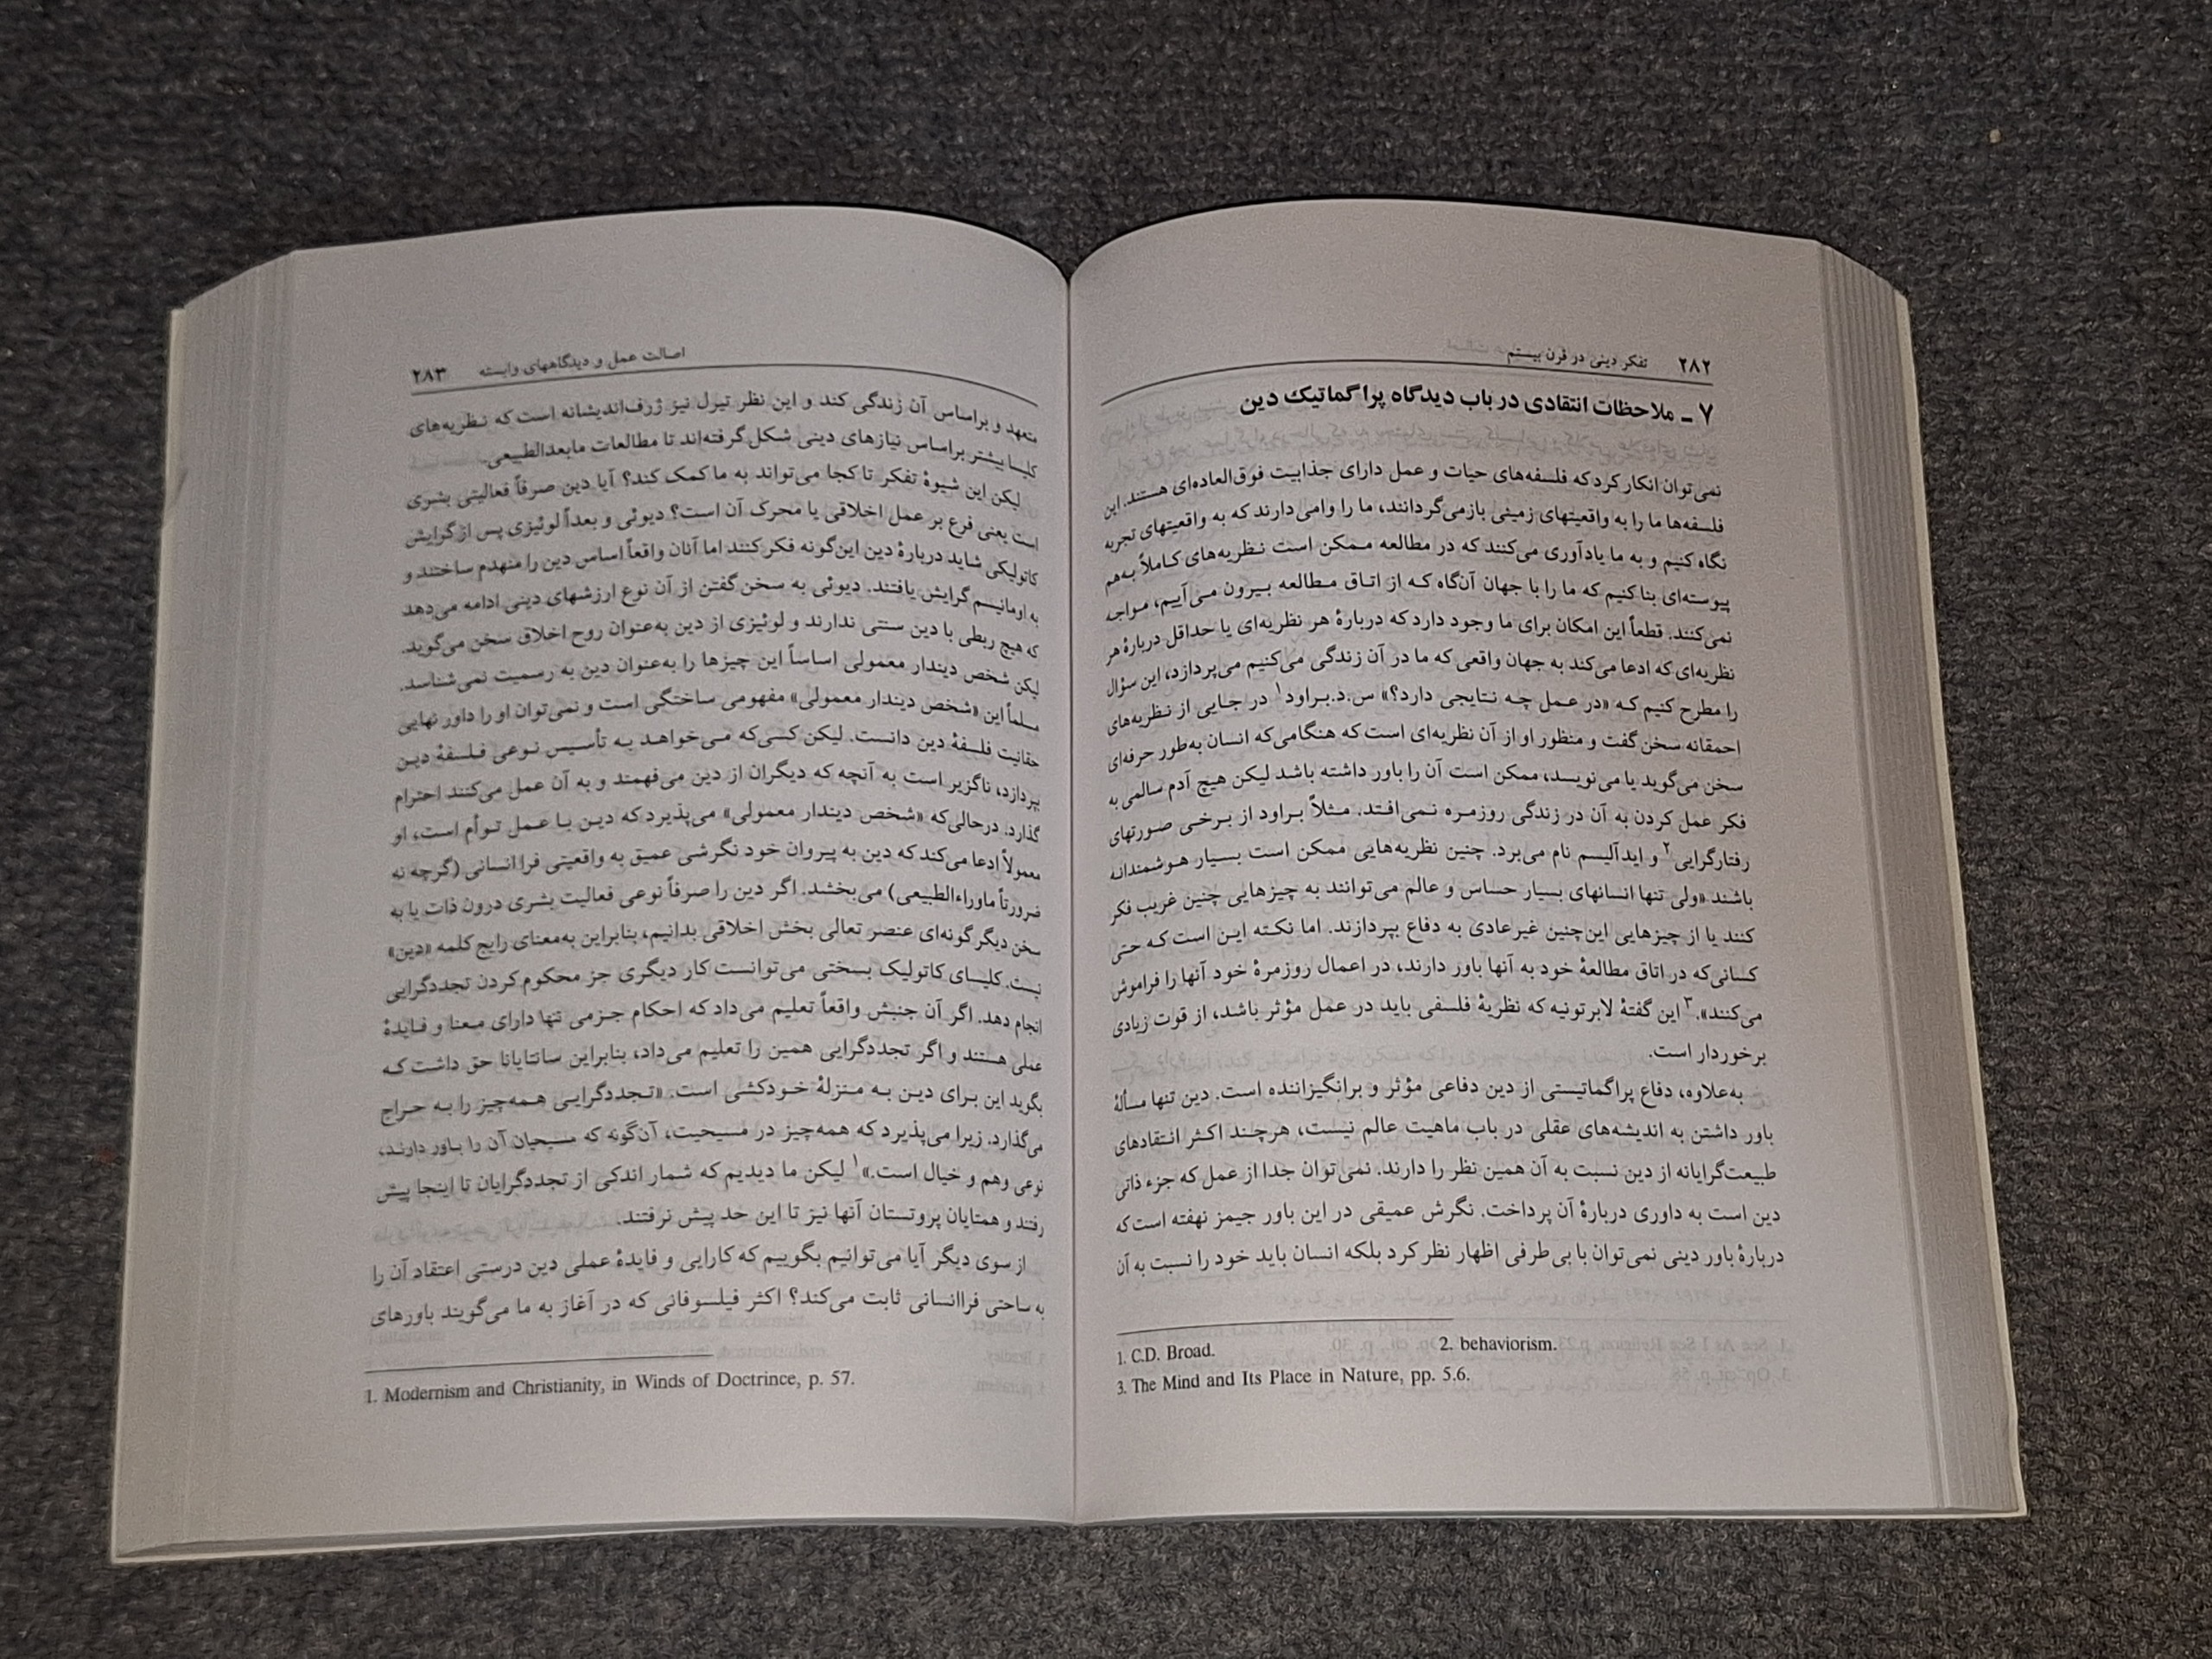 ۲۸۲ تفکر دینی در قرن بیستم
۷ ـ ملاحظات انتقادی در باب دیدگاه پراگماتیک دین
نمی‌توان انکار کرد که فلسفه‌های حیات و عمل دارای جذابیت فوق‌العاده‌ای هستند. این
فلسفه‌ها ما را به واقعیتهای زمینی بازمی‌گردانند، ما را وامی‌دارند که به واقعیتهای تجربه
نگاه کنیم و به ما یادآوری می‌کنند که در مطالعه ممکن است نظریه‌های کاملاً به‌هم
پیوسته‌ای بنا کنیم که ما را با جهان آن‌گاه که از اتاق مطالعه بیرون می‌آییم، مواجه
نمی‌کنند. قطعاً این امکان برای ما وجود دارد که دربارهٔ هر نظریه‌ای یا حداقل دربارهٔ هر
نظریه‌ای که ادعا می‌کند به جهان واقعی که ما در آن زندگی می‌کنیم می‌پردازد، این سؤال
را مطرح کنیم که «در عمل چه نتایجی دارد؟» س.د.براود۱ در جایی از نظریه‌های
احمقانه سخن گفت و منظور او از آن نظریه‌ای است که هنگامی‌که انسان به‌طور حرفه‌ای
سخن می‌گوید یا می‌نویسد، ممکن است آن را باور داشته باشد لیکن هیچ آدم سالمی به
فکر عمل کردن به آن در زندگی روزمره نمی‌افتد. مثلاً براود از برخی صورتهای
رفتارگرایی۲ و ایدآلیسم نام می‌برد. چنین نظریه‌هایی ممکن است بسیار هوشمندانه
باشند «ولی تنها انسانهای بسیار حساس و عالم می‌توانند به چیزهایی چنین غریب فکر
کنند یا از چیزهایی این‌چنین غیرعادی به دفاع بپردازند. اما نکته این است که حتی
کسانی‌که در اتاق مطالعهٔ خود به آنها باور دارند، در اعمال روزمرهٔ خود آنها را فراموش
می‌کنند».۳ این گفتهٔ لابرتونیه که نظریهٔ فلسفی باید در عمل مؤثر باشد، از قوت زیادی
برخوردار است.
به‌علاوه، دفاع پراگماتیستی از دین دفاعی مؤثر و برانگیزاننده است. دین تنها مسألهٔ
باور داشتن به اندیشه‌های عقلی در باب ماهیت عالم نیست، هرچند اکثر انتقادهای
طبیعت‌گرایانه از دین نسبت به آن همین نظر را دارند. نمی‌توان جدا از عمل که جزء ذاتی
دین است به داوری دربارهٔ آن پرداخت. نگرش عمیقی در این باور جیمز نهفته است که
دربارهٔ باور دینی نمی‌توان با بی‌طرفی اظهار نظر کرد بلکه انسان باید خود را نسبت به آن
1. C.D. Broad. 2. behaviorism.
3. The Mind and Its Place in Nature, pp. 5.6.
اصالت عمل و دیدگاههای وابسته ۲۸۳
متعهد و براساس آن زندگی کند و این نظر تیرل نیز ژرف‌اندیشانه است که نظریه‌های
کلیسا بیشتر براساس نیازهای دینی شکل گرفته‌اند تا مطالعات مابعدالطبیعی.
لیکن این شیوهٔ تفکر تا کجا می‌تواند به ما کمک کند؟ آیا دین صرفاً فعالیتی بشری
است یعنی فرع بر عمل اخلاقی یا محرک آن است؟ دیوئی و بعداً لوئیزی پس از گرایش
کاتولیکی شاید دربارهٔ دین این‌گونه فکر کنند اما آنان واقعاً اساس دین را منهدم ساختند و
به اومانیسم گرایش یافتند. دیوئی به سخن گفتن از آن نوع ارزشهای دینی ادامه می‌دهد
که هیچ ربطی با دین سنتی ندارند و لوئیزی از دین به‌عنوان روح اخلاق سخن می‌گوید.
لیکن شخص دیندار معمولی اساساً این چیزها را به‌عنوان دین به رسمیت نمی‌شناسد.
مسلماً این «شخص دیندار معمولی» مفهومی ساختگی است و نمی‌توان او را داور نهایی
حقانیت فلسفهٔ دین دانست. لیکن کسی‌که می‌خواهد به تأسیس نوعی فلسفهٔ دین
بپردازد، ناگزیر است به آنچه که دیگران از دین می‌فهمند و به آن عمل می‌کنند احترام
گذارد. درحالی‌که «شخص دیندار معمولی» می‌پذیرد که دین با عمل توأم است، او
معمولاً ادعا می‌کند که دین به پیروان خود نگرشی عمیق به واقعیتی فرا انسانی (گرچه نه
ضرورتاً ماوراءالطبیعی) می‌بخشد. اگر دین را صرفاً نوعی فعالیت بشری درون ذات یا به
سخن دیگر گونه‌ای عنصر تعالی بخش اخلاقی بدانیم، بنابراین به‌معنای رایج کلمه «دین»
نیست. کلیسای کاتولیک بسختی می‌توانست کار دیگری جز محکوم کردن تجددگرایی
انجام دهد. اگر آن جنبش واقعاً تعلیم می‌داد که احکام جزمی تنها دارای معنا و فایدهٔ
عملی هستند و اگر تجددگرایی همین را تعلیم می‌داد، بنابراین سانتایانا حق داشت که
بگوید این برای دین به منزلهٔ خودکشی است. «تجددگرایی همه‌چیز را به حراج
می‌گذارد. زیرا می‌پذیرد که همه‌چیز در مسیحیت، آن‌گونه که مسیحیان آن را باور دارند،
نوعی وهم و خیال است.»۱ لیکن ما دیدیم که شمار اندکی از تجددگرایان تا اینجا پیش
رفتند و همتایان پروتستان آنها نیز تا این حد پیش نرفتند.
از سوی دیگر آیا می‌توانیم بگوییم که کارایی و فایدهٔ عملی دین درستی اعتقاد آن را
به ساحتی فراانسانی ثابت می‌کند؟ اکثر فیلسوفانی که در آغاز به ما می‌گویند باورهای
1. Modernism and Christianity, in Winds of Doctrince, p. 57.